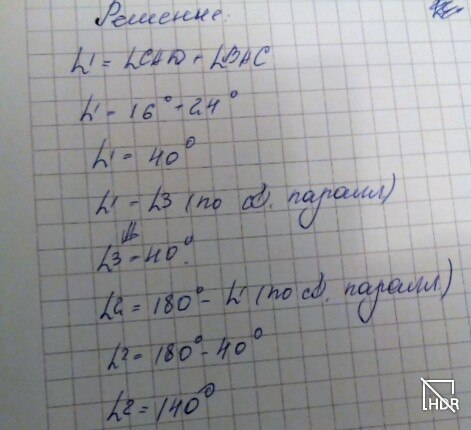 Решение:
∠1 = ∠CAD + ∠BAC
∠1 = 16° + 24°
∠1 = 40°
∠1 = ∠3 (по св. паралл)
∠3 = 40°.
∠2 = 180° - ∠1 (по св. паралл.)
∠2 = 180° - 40°
∠2 = 140°
HDR